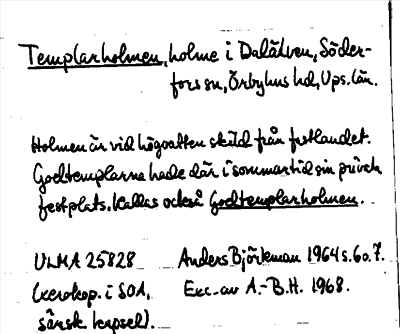 Templarholmen, holme i Dalälven, Söder-
fors sn, Örbyhus hd, Ups. län.
Holmen är vid högvatten skild från fastlandet.
Godtemplarna hade där i sommartid sin privata
festplats. Kallas också Godtemplarholmen.
ULMA 25828 Anders Björkman 1964 s. 6 o. 7.
(xerokop. i SOA, Exc. av A.-B.H. 1968.
särsk. kapsel).